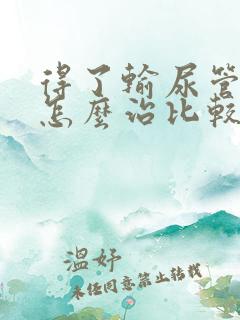 得了輸尿管
怎麼治比較
溫妤
未经同意禁止转载